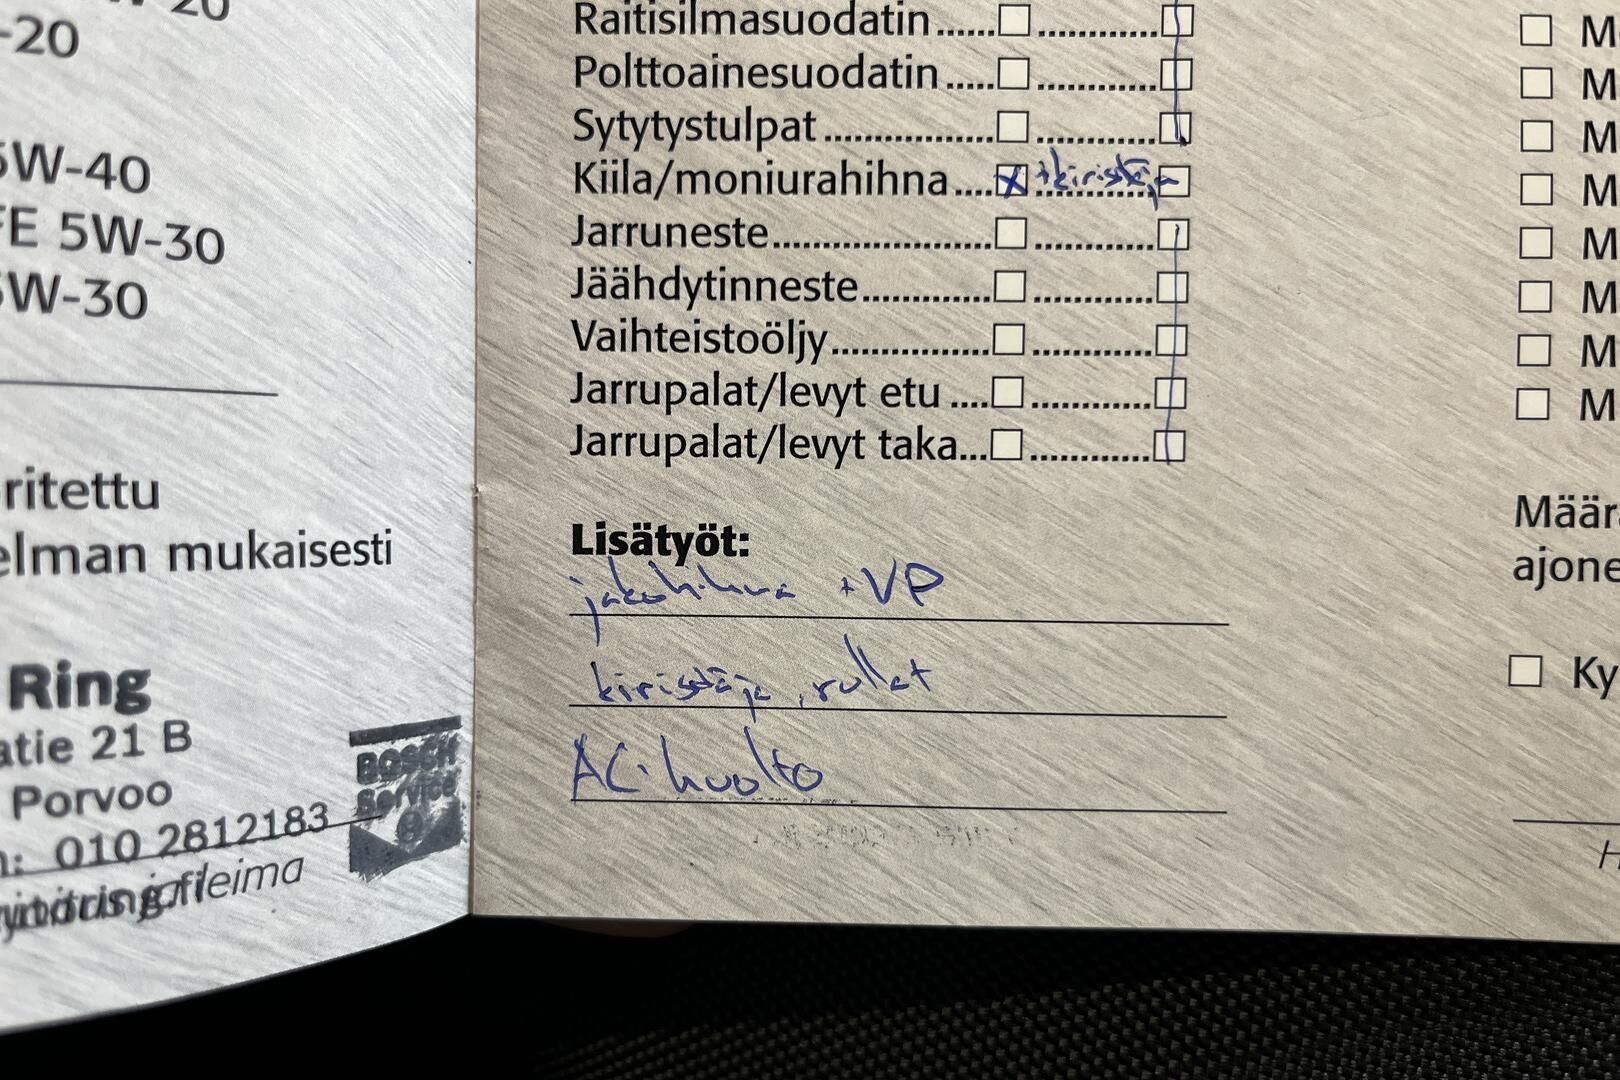 20
-20
5W-40
FE 5W-30
5W-30
ritettu
elman mukaisesti
Ring
atie 21 B
Porvoo
010 2812183
BOSCH
Service
leima
Raitisilmasuodatin
Polttoainesuodatin
Sytytystulpat
Kiila/moniurahihna x +kiristäjä
Jarruneste
Jäähdytinneste
Vaihteistoöljy
Jarrupalat/levyt etu
Jarrupalat/levyt taka
Lisätyöt:
jakohihna + VP
kiristäjä, rullat
AC-huolto
M
M
M
M
M
M
M
M
Määr
ajone
Ky
H